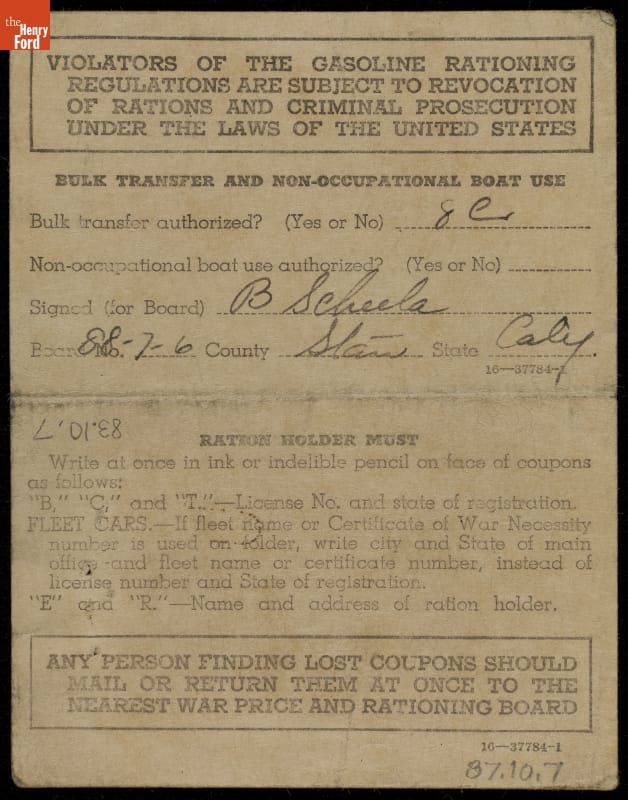 the
Henry
Ford
VIOLATORS OF THE GASOLINE RATIONING
REGULATIONS ARE SUBJECT TO REVOCATION
OF RATIONS AND CRIMINAL PROSECUTION
UNDER THE LAWS OF THE UNITED STATES
BULK TRANSFER AND NON-OCCUPATIONAL BOAT USE
Bulk transfer authorized? (Yes or No)
Non-occupational boat use authorized? (Yes or No)
Signed (for Board) B Scheela
Board No. 88-7-6 County Stan State Calif.
16—37784-1
RATION HOLDER MUST
Write at once in ink or indelible pencil on face of coupons
as follows:
"B," "C," and "T."—License No. and state of registration.
FLEET CARS.—If fleet name or Certificate of War Necessity
number is used on folder, write city and State of main
office and fleet name or certificate number, instead of
license number and State of registration.
"E" and "R."—Name and address of ration holder.
ANY PERSON FINDING LOST COUPONS SHOULD
MAIL OR RETURN THEM AT ONCE TO THE
NEAREST WAR PRICE AND RATIONING BOARD
16—37784-1
37.10.7